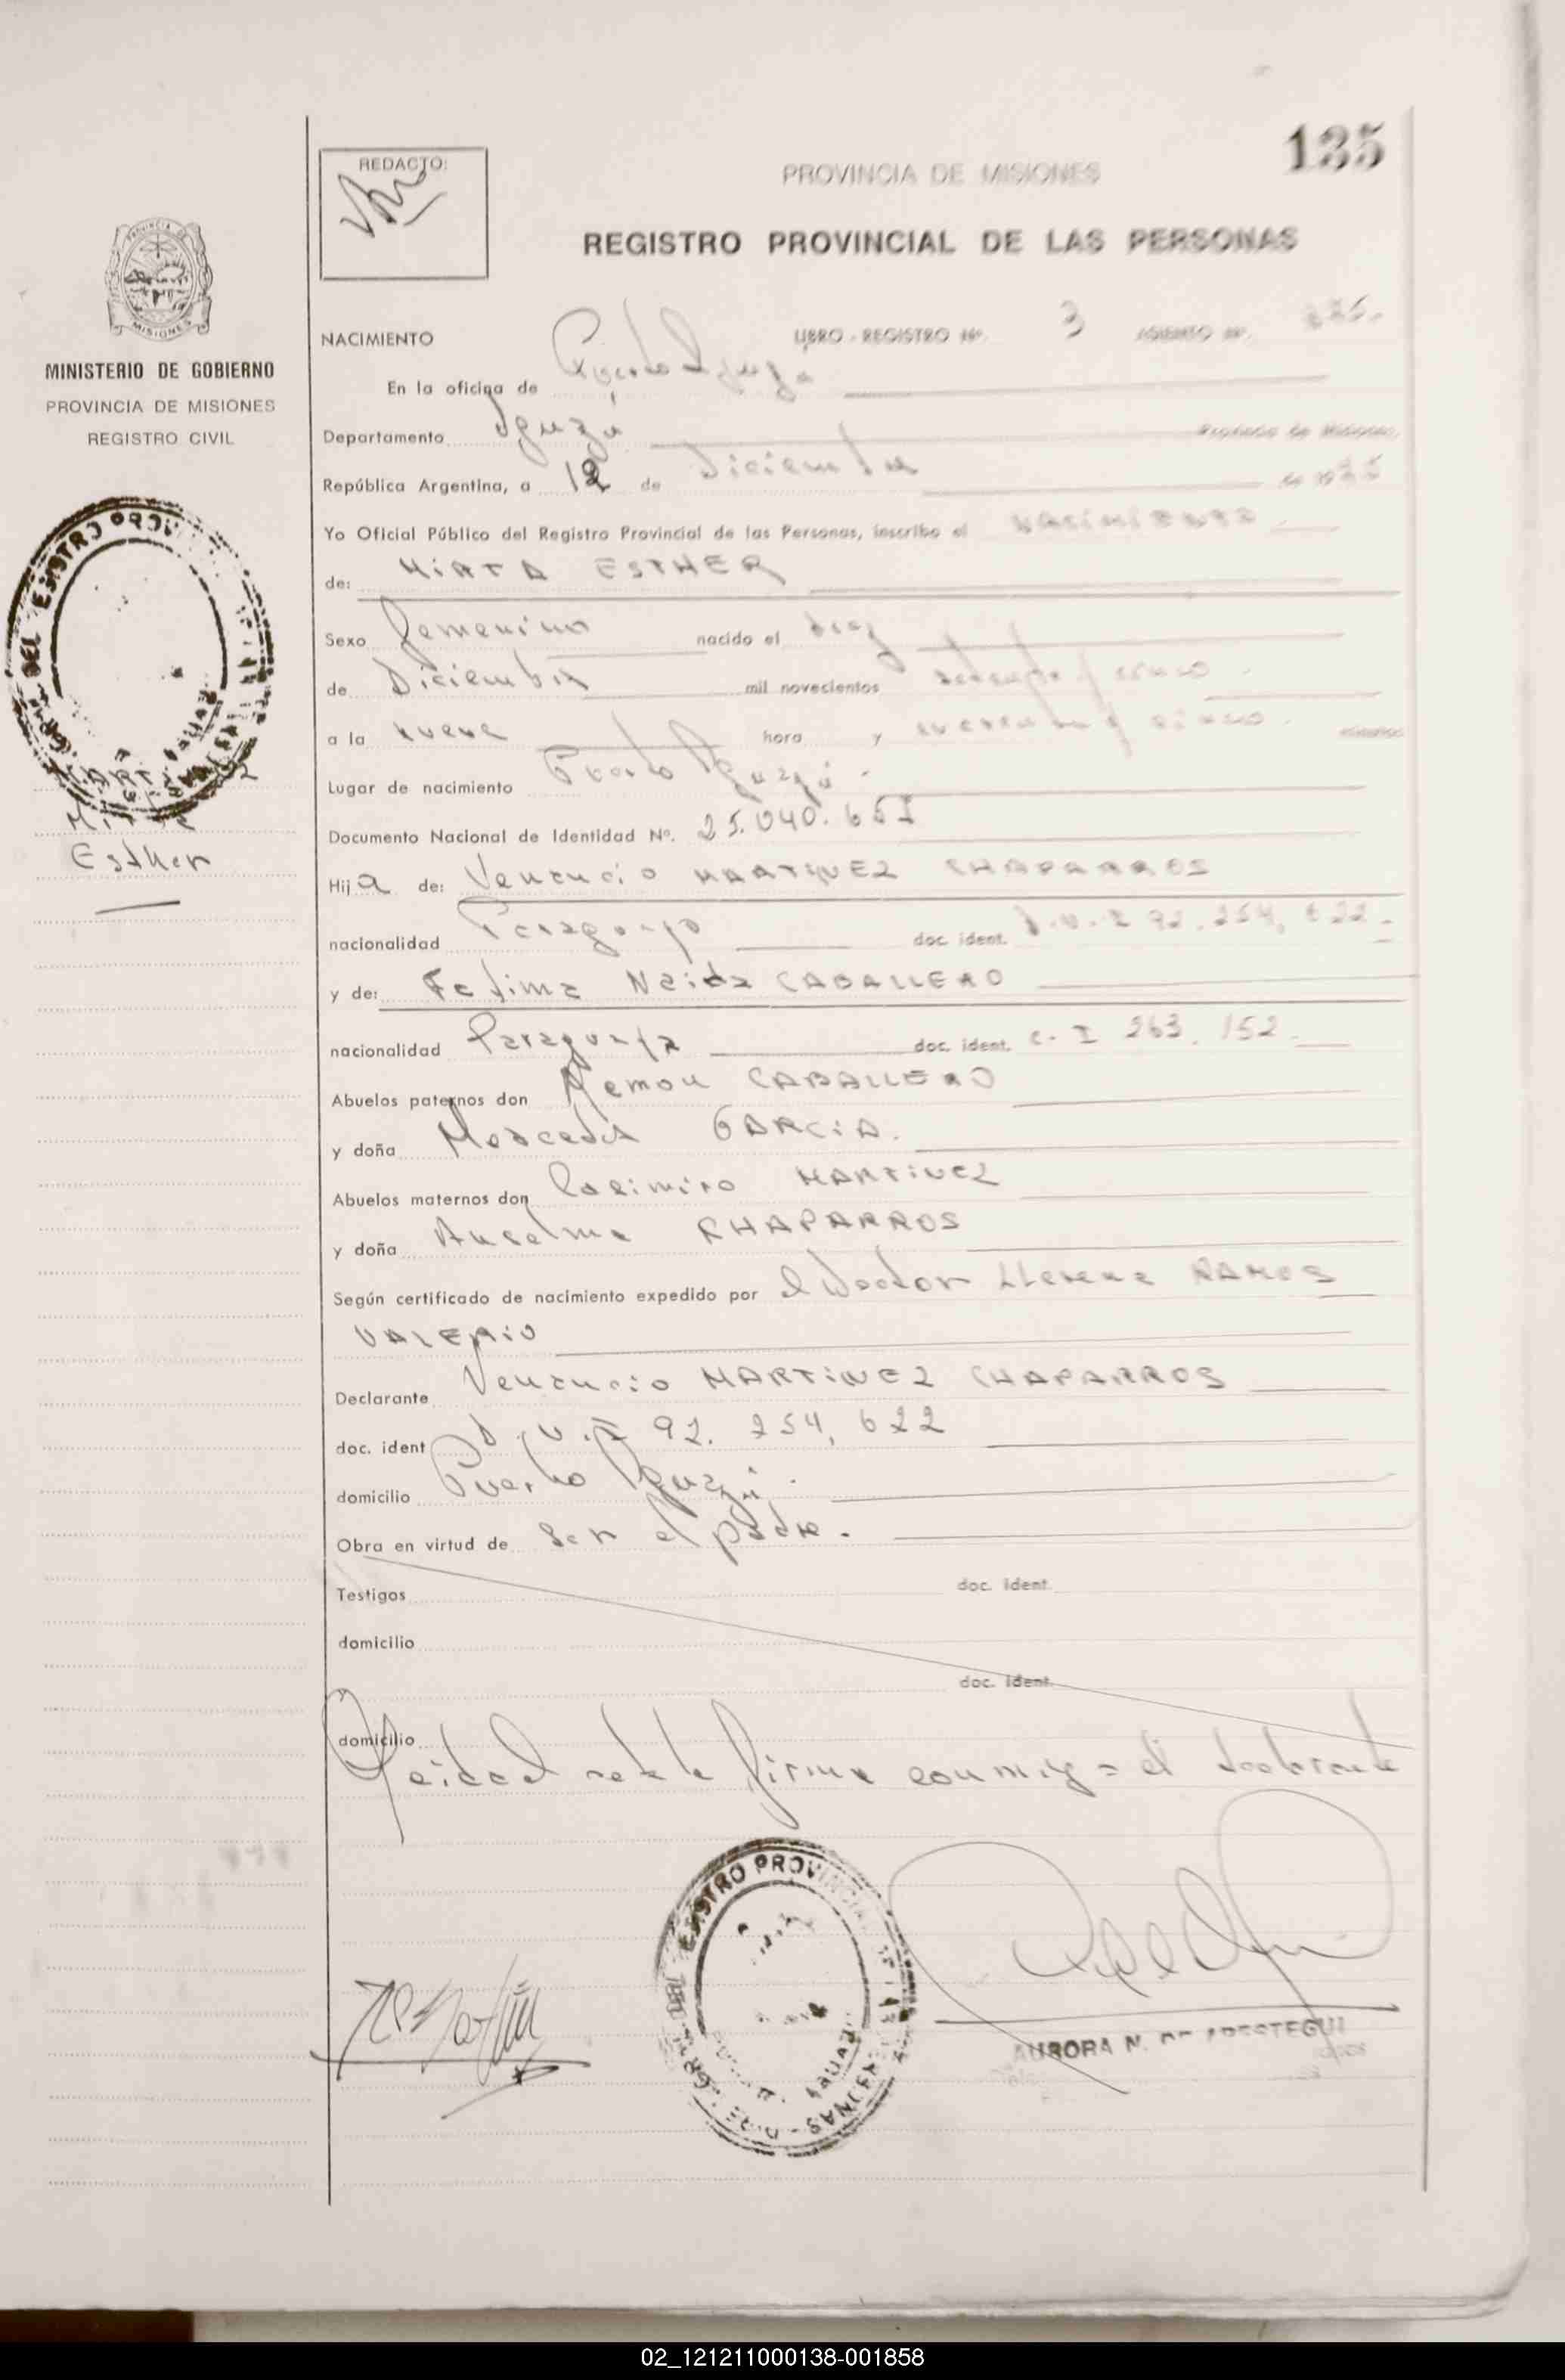 135
REDACTO:
PROVINCIA DE MISIONES
REGISTRO PROVINCIAL DE LAS PERSONAS
MINISTERIO DE GOBIERNO
PROVINCIA DE MISIONES
REGISTRO CIVIL
Esther
NACIMIENTO LIBRO - REGISTRO Nº. 3 ASIENTO Nº.
En la oficina de Puerto Iguazú
Departamento Iguazú Provincia de Misiones,
República Argentina, a 12 de Diciembre de 1975
Yo Oficial Público del Registro Provincial de las Personas, inscribo el NACIMIENTO
de: MIRTA ESTHER
Sexo femenino nacido el diez
de Diciembre mil novecientos setenta y cinco
a la nueve hora y cuarenta y cinco minutos
Lugar de nacimiento Puerto Iguazú
Documento Nacional de Identidad Nº. 25.040.651
Hija de: Venancio MARTINEZ CHAPARROS
nacionalidad Paraguayo doc. ident. D.N.I 92.254.622
y de: Fatima Neida CABALLERO
nacionalidad Paraguaya doc. ident. C. I 263.152
Abuelos paternos don Ramon CABALLERO
y doña Mercedes GARCIA.
Abuelos maternos don Casimiro MARTINEZ
y doña Anselma CHAPARROS
Según certificado de nacimiento expedido por el Doctor Llerena RAMOS
VALERIO
Declarante Venancio MARTINEZ CHAPARROS
doc. ident D.N.I 92.254,622
domicilio Puerto Iguazú.
Obra en virtud de ser el padre.
Testigos doc. ident.
domicilio
doc. ident.
domicilio
Leida el acta la firma conmigo el declarante
AURORA N. DE ARESTEGUI
02_121211000138-001858